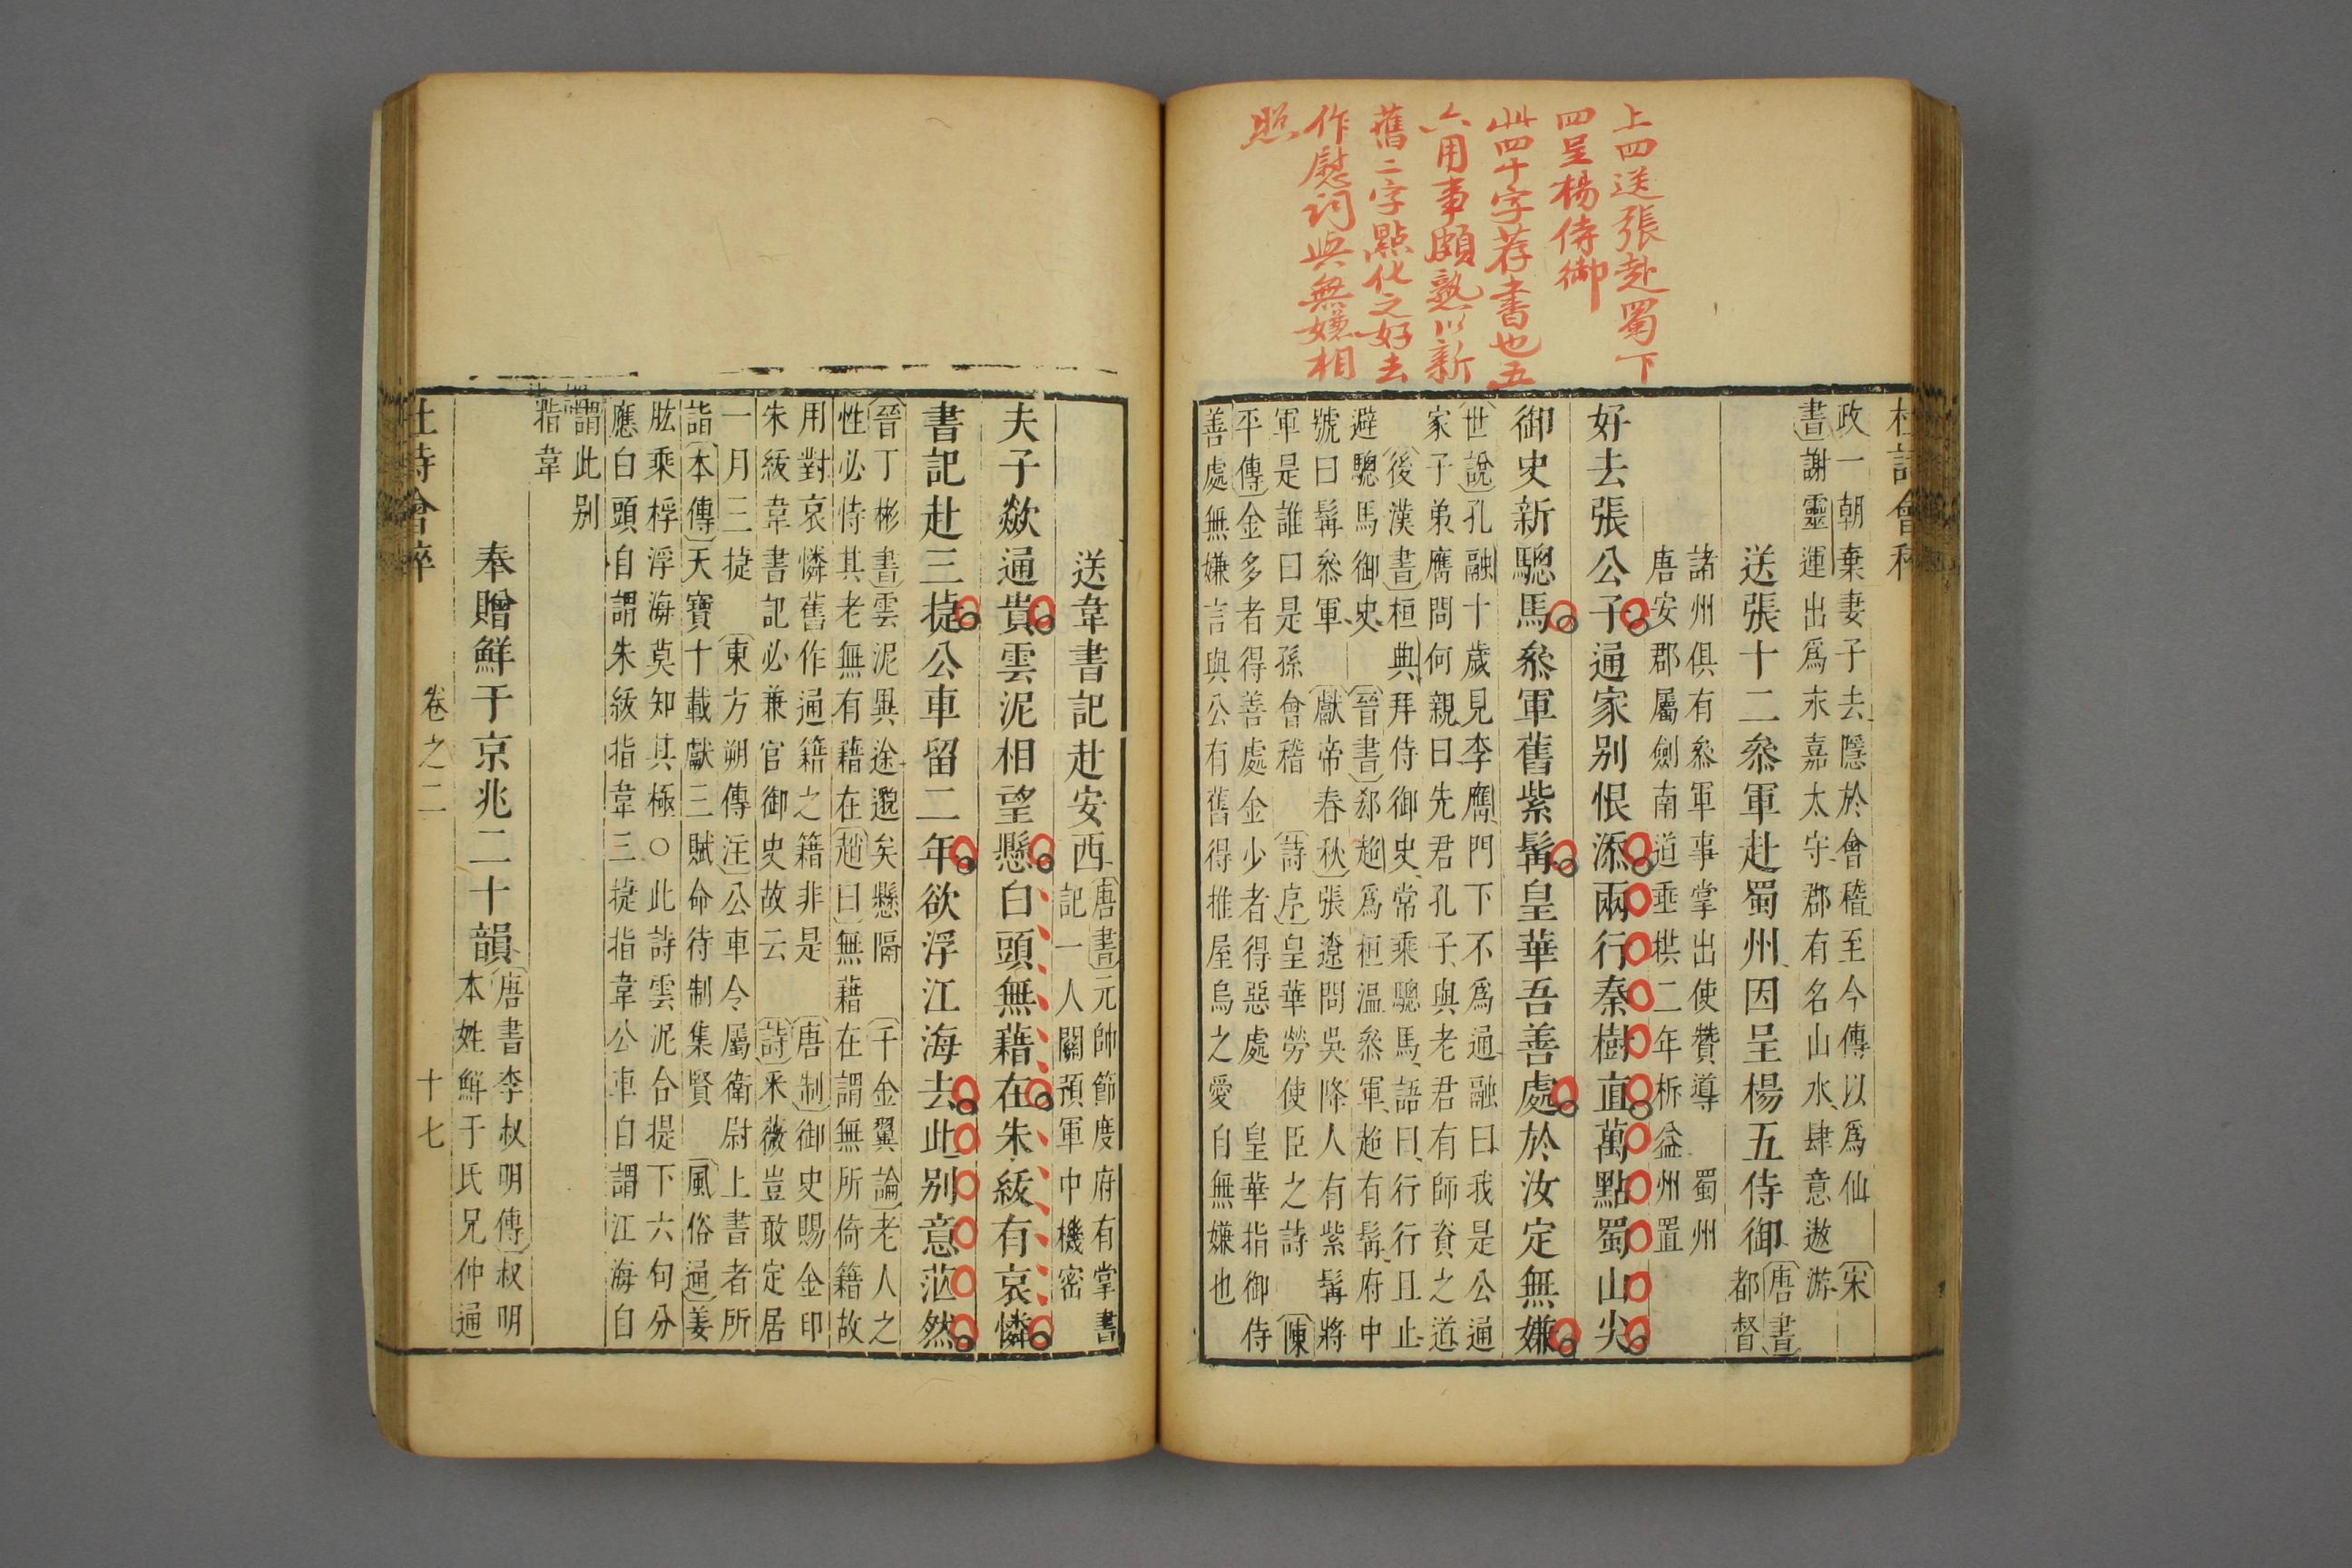 上四送張赴蜀下
四呈楊侍御
此四十字荐書也五
六用事頗熟以新
舊二字點化之好去
作慰詞與無嫌相
照
政一朝棄妻子去隱於會稽至今傳以爲仙〔宋
書〕謝靈運出爲永嘉太守郡有名山水肆意遨游
送張十二叅軍赴蜀州因呈楊五侍御〔唐書〕
都督
諸州俱有叅軍事掌出使贊導 蜀州
唐安郡屬劍南道垂拱二年析益州置
好去張公子通家别恨添兩行秦樹直萬點蜀山尖
御史新驄馬叅軍舊紫髯皇華吾善處於汝定無嫌
〔世說〕孔融十歲見李膺門下不爲通融曰我是公通
家子弟膺問何親曰先君孔子與老君有師資之道
〔後漢書〕桓典拜侍御史常乘驄馬語曰行行且止
避驄馬御史〔晉書〕郄超爲桓溫叅軍超有髯府中
號曰髯叅軍〔獻帝春秋〕張遼問吳降人有紫髯將
軍是誰曰是孫會稽〔詩序〕皇華勞使臣之詩〔陳
平傳〕金多者得善處金少者得惡處 皇華指御侍
善處無嫌言與公有舊得推屋烏之愛自無嫌也
送韋書記赴安西〔唐書〕元帥節度府有掌書
記一人關預軍中機密
夫子歘通貴雲泥相望懸白頭無藉在朱紱有哀憐
書記赴三捷公車留二年欲浮江海去此别意茫然
〔晉丁彬書〕雲泥異途邈矣懸隔〔千金翼論〕老人之
性必恃其老無有藉在〔趙曰〕無藉在謂無所倚籍故
用對哀憐舊作通籍之籍非是〔唐制〕御史賜金印
朱紱韋書記必兼官御史故云〔詩〕采薇豈敢定居
一月三捷〔東方朔傳注〕公車令屬衛尉上書者所
詣〔本傳〕天寶十載獻三賦命待制集賢〔風俗通〕姜
肱乘桴浮海莫知其極○此詩雲泥合提下六句分
應白頭自謂朱紱指韋三捷指韋公車自謂江海自
謂此别
指韋
奉贈鮮于京兆二十韻〔唐書李叔明傳〕叔明
本姓鮮于氏兄仲通
卷之二 十七